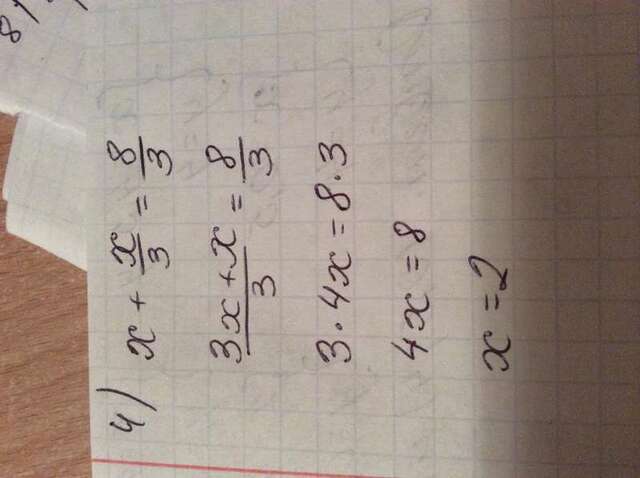 4) x + x/3 = 8/3
3x + x/3 = 8/3
3 · 4x = 8 · 3
4x = 8
x = 2